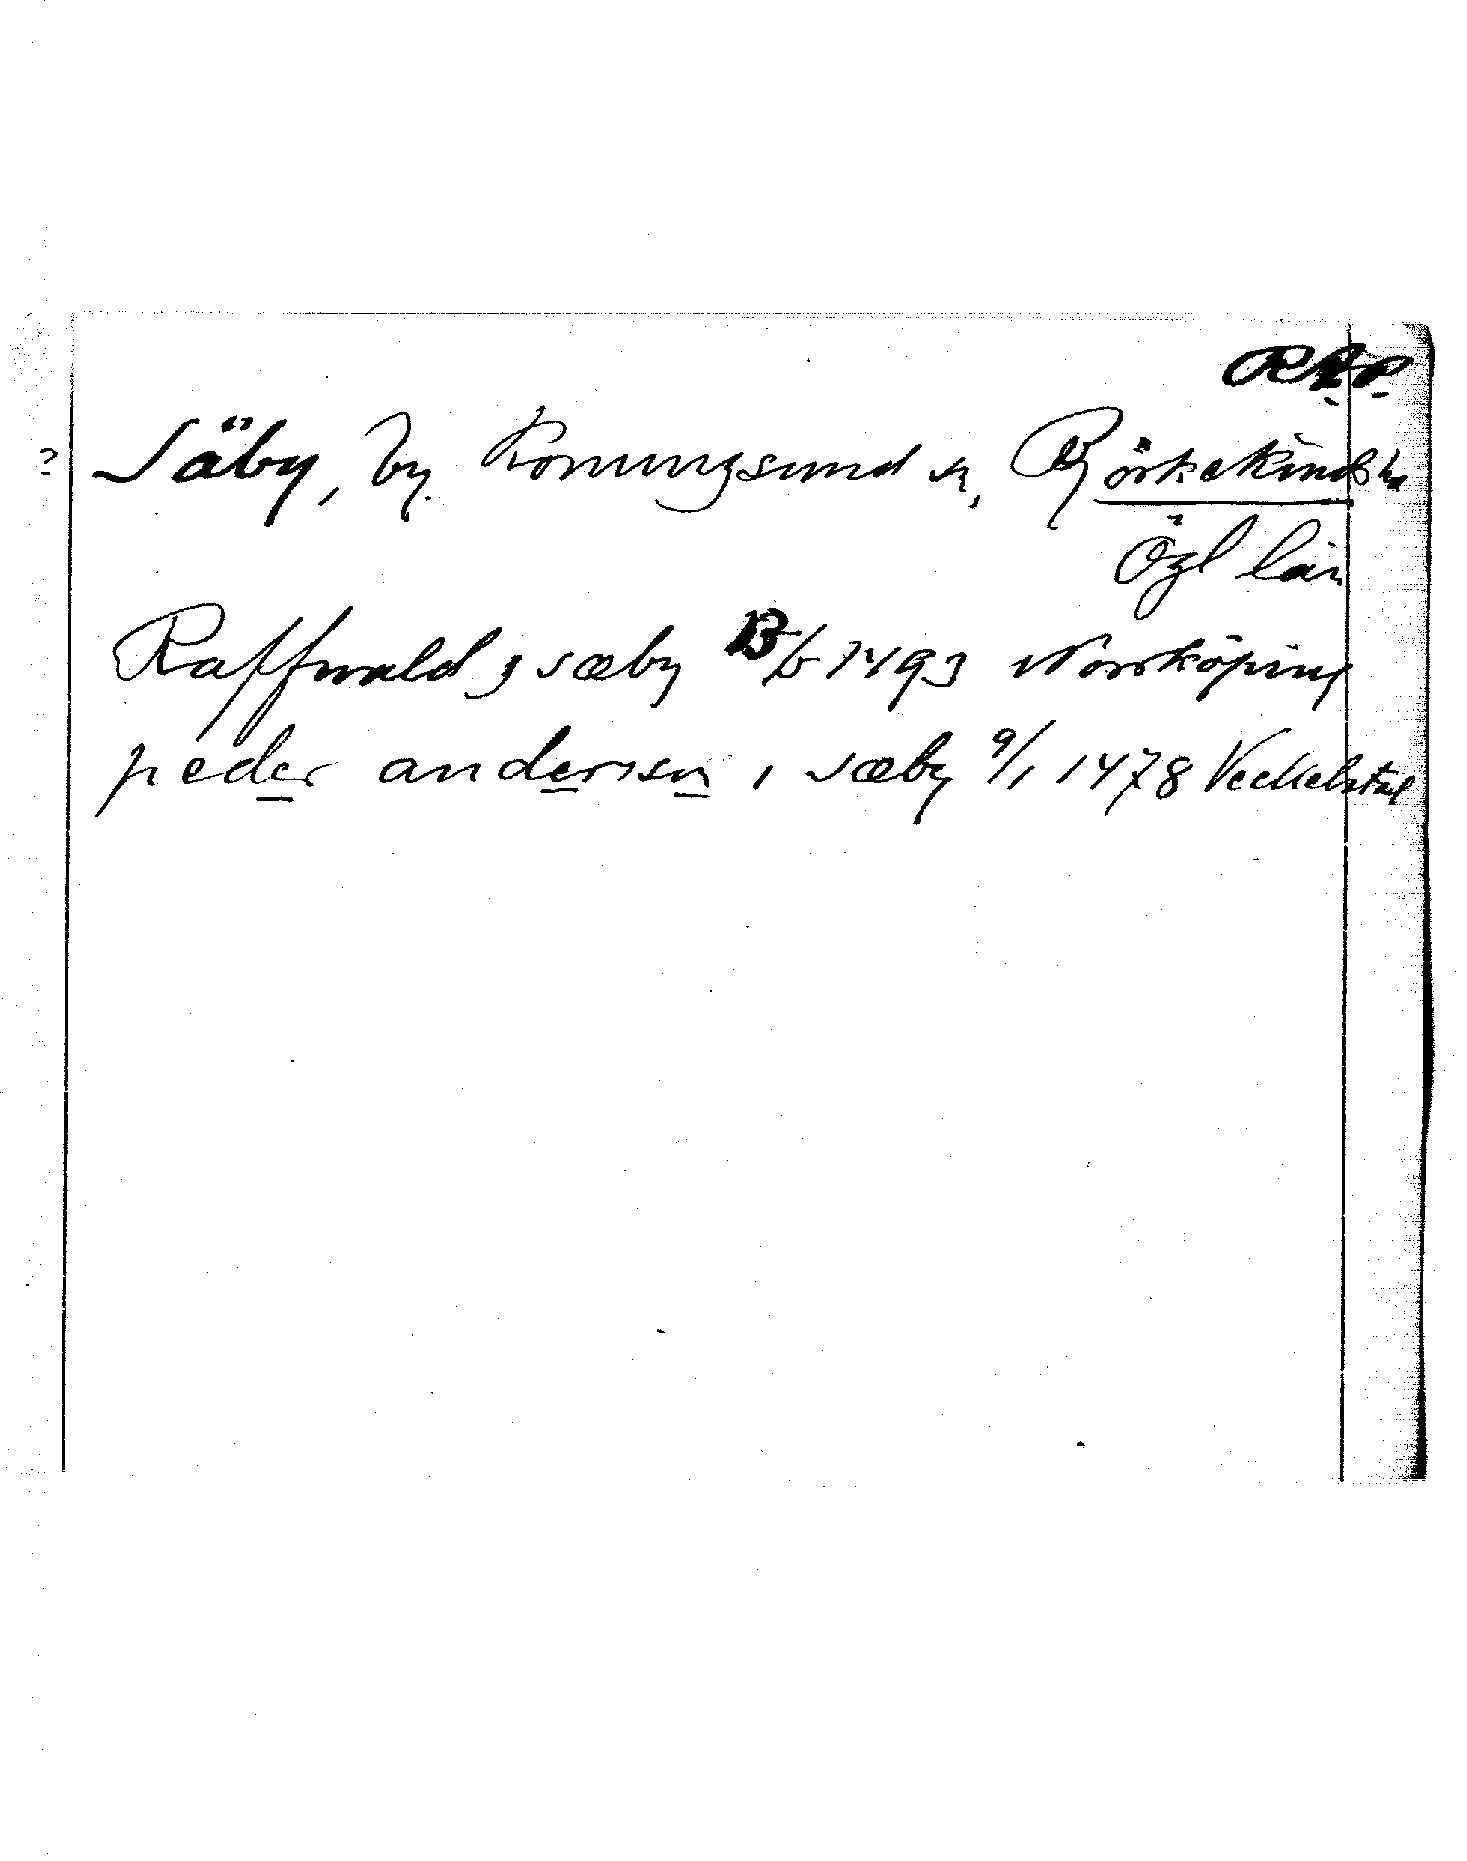 RAp
? Säby, by. Konungsund sn, Björkekinds hd
Ögl län
Raffwald j sæby 13/6 1493 Norrköping
peder andersen i sæby 9/1 1478